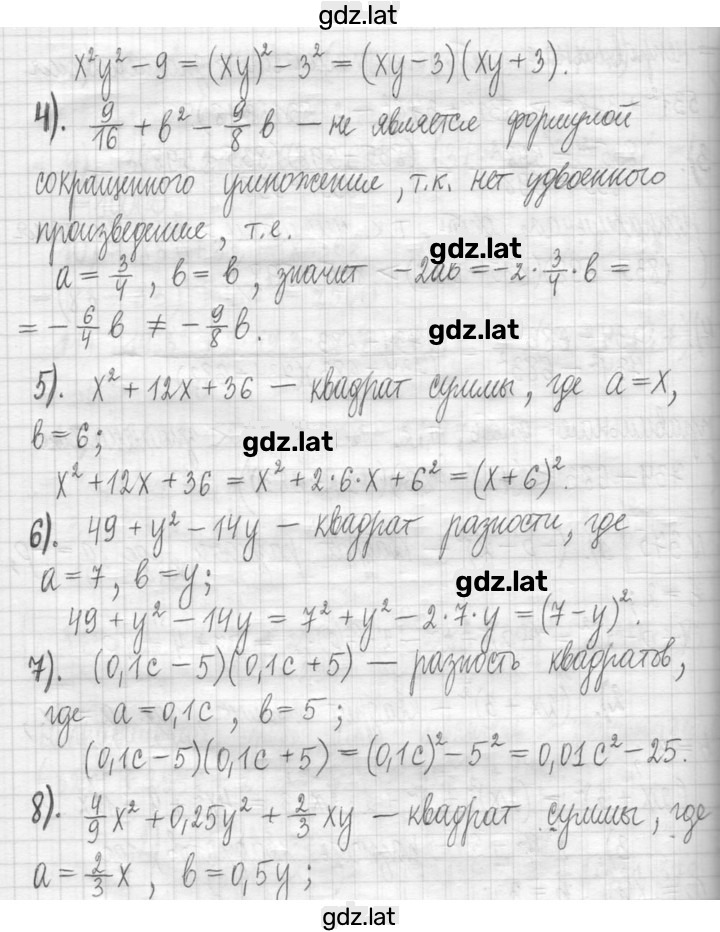 gdz.lat
x²y² - 9 = (xy)² - 3² = (xy - 3)(xy + 3).
4). 9/16 + b² - 9/8 b — не является формулой
сокращенного умножения, т.к. нет удвоенного
произведения, т.е.
gdz.lat
a = 3/4, b = b, значит -2ab = -2 · 3/4 · b =
= - 6/4 b ≠ - 9/8 b.
gdz.lat
5). x² + 12x + 36 — квадрат суммы, где a = x,
b = 6;
gdz.lat
x² + 12x + 36 = x² + 2·6·x + 6² = (x + 6)².
6). 49 + y² - 14y — квадрат разности, где
a = 7, b = y;
gdz.lat
49 + y² - 14y = 7² + y² - 2·7·y = (7 - y)².
7). (0,1c - 5)(0,1c + 5) — разность квадратов,
где a = 0,1c, b = 5;
(0,1c - 5)(0,1c + 5) = (0,1c)² - 5² = 0,01c² - 25.
8). 4/9 x² + 0,25y² + 2/3 xy — квадрат суммы, где
a = 2/3 x, b = 0,5y;
gdz.lat